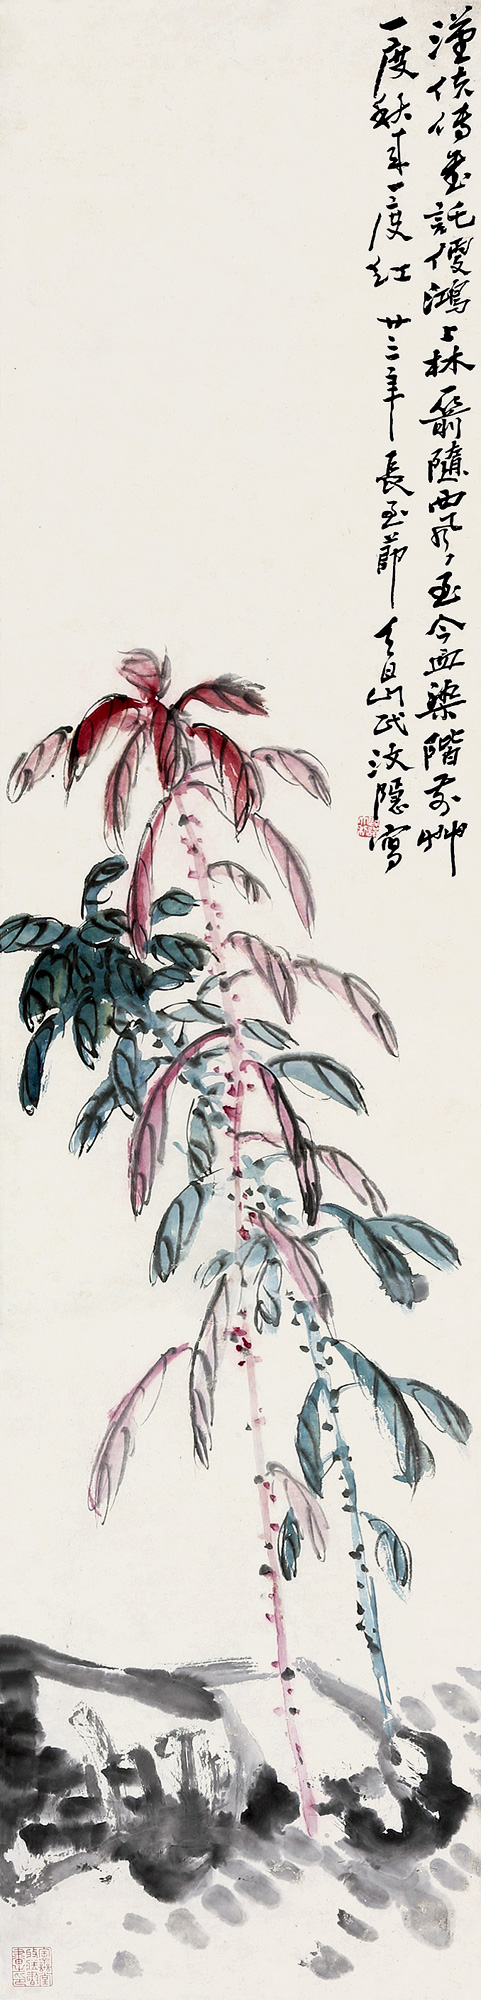 漢使傳書託便鴻上林一箭隨西風至今血染階前艸
一度秋來一度紅 廿三年長至節天目山民汶隱寫